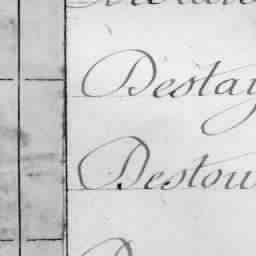 Destay
Destou